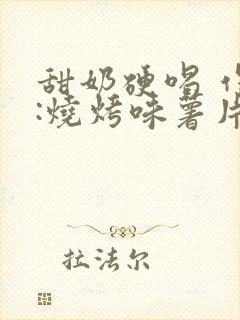 甜奶硬唱
:燒烤味薯片
拉法尔